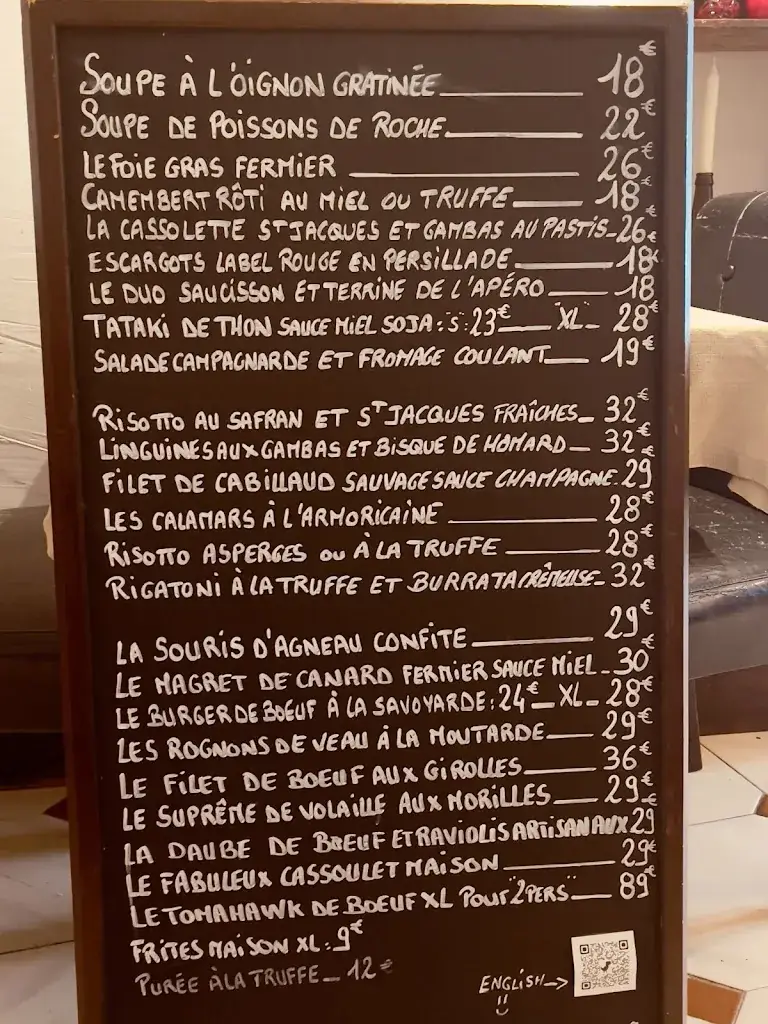 SOUPE À L'OIGNON GRATINÉE 18€
SOUPE DE POISSONS DE ROCHE 22€
LE FOIE GRAS FERMIER 26€
CAMEMBERT RÔTI AU MIEL OU TRUFFE 18€
LA CASSOLETTE ST JACQUES ET GAMBAS AU PASTIS 26€
ESCARGOTS LABEL ROUGE EN PERSILLADE 18€
LE DUO SAUCISSON ET TERRINE DE L'APÉRO 18
TATAKI DE THON SAUCE MIEL SOJA: "S": 23€ "XL" 28€
SALADE CAMPAGNARDE ET FROMAGE COULANT 19€
RISOTTO AU SAFRAN ET ST JACQUES FRAÎCHES 32€
LINGUINES AUX GAMBAS ET BISQUE DE HOMARD 32€
FILET DE CABILLAUD SAUVAGE SAUCE CHAMPAGNE 29
LES CALAMARS À L'ARMORICAINE 28€
RISOTTO ASPERGES OU À LA TRUFFE 28€
RIGATONI À LA TRUFFE ET BURRATA CRÉMEUSE 32€
LA SOURIS D'AGNEAU CONFITE 29€
LE MAGRET DE CANARD FERMIER SAUCE MIEL 30€
LE BURGER DE BOEUF À LA SAVOYARDE: 24€ XL 28€
LES ROGNONS DE VEAU À LA MOUTARDE 29€
LE FILET DE BOEUF AUX GIROLLES 36€
LE SUPRÊME DE VOLAILLE AUX MORILLES 29€
LA DAUBE DE BOEUF ET RAVIOLIS ARTISANAUX 29
LE FABULEUX CASSOULET MAISON 29€
LE TOMAHAWK DE BOEUF XL POUR "2 PERS" 89€
FRITES MAISON XL: 9€
PURÉE À LA TRUFFE 12€
ENGLISH →